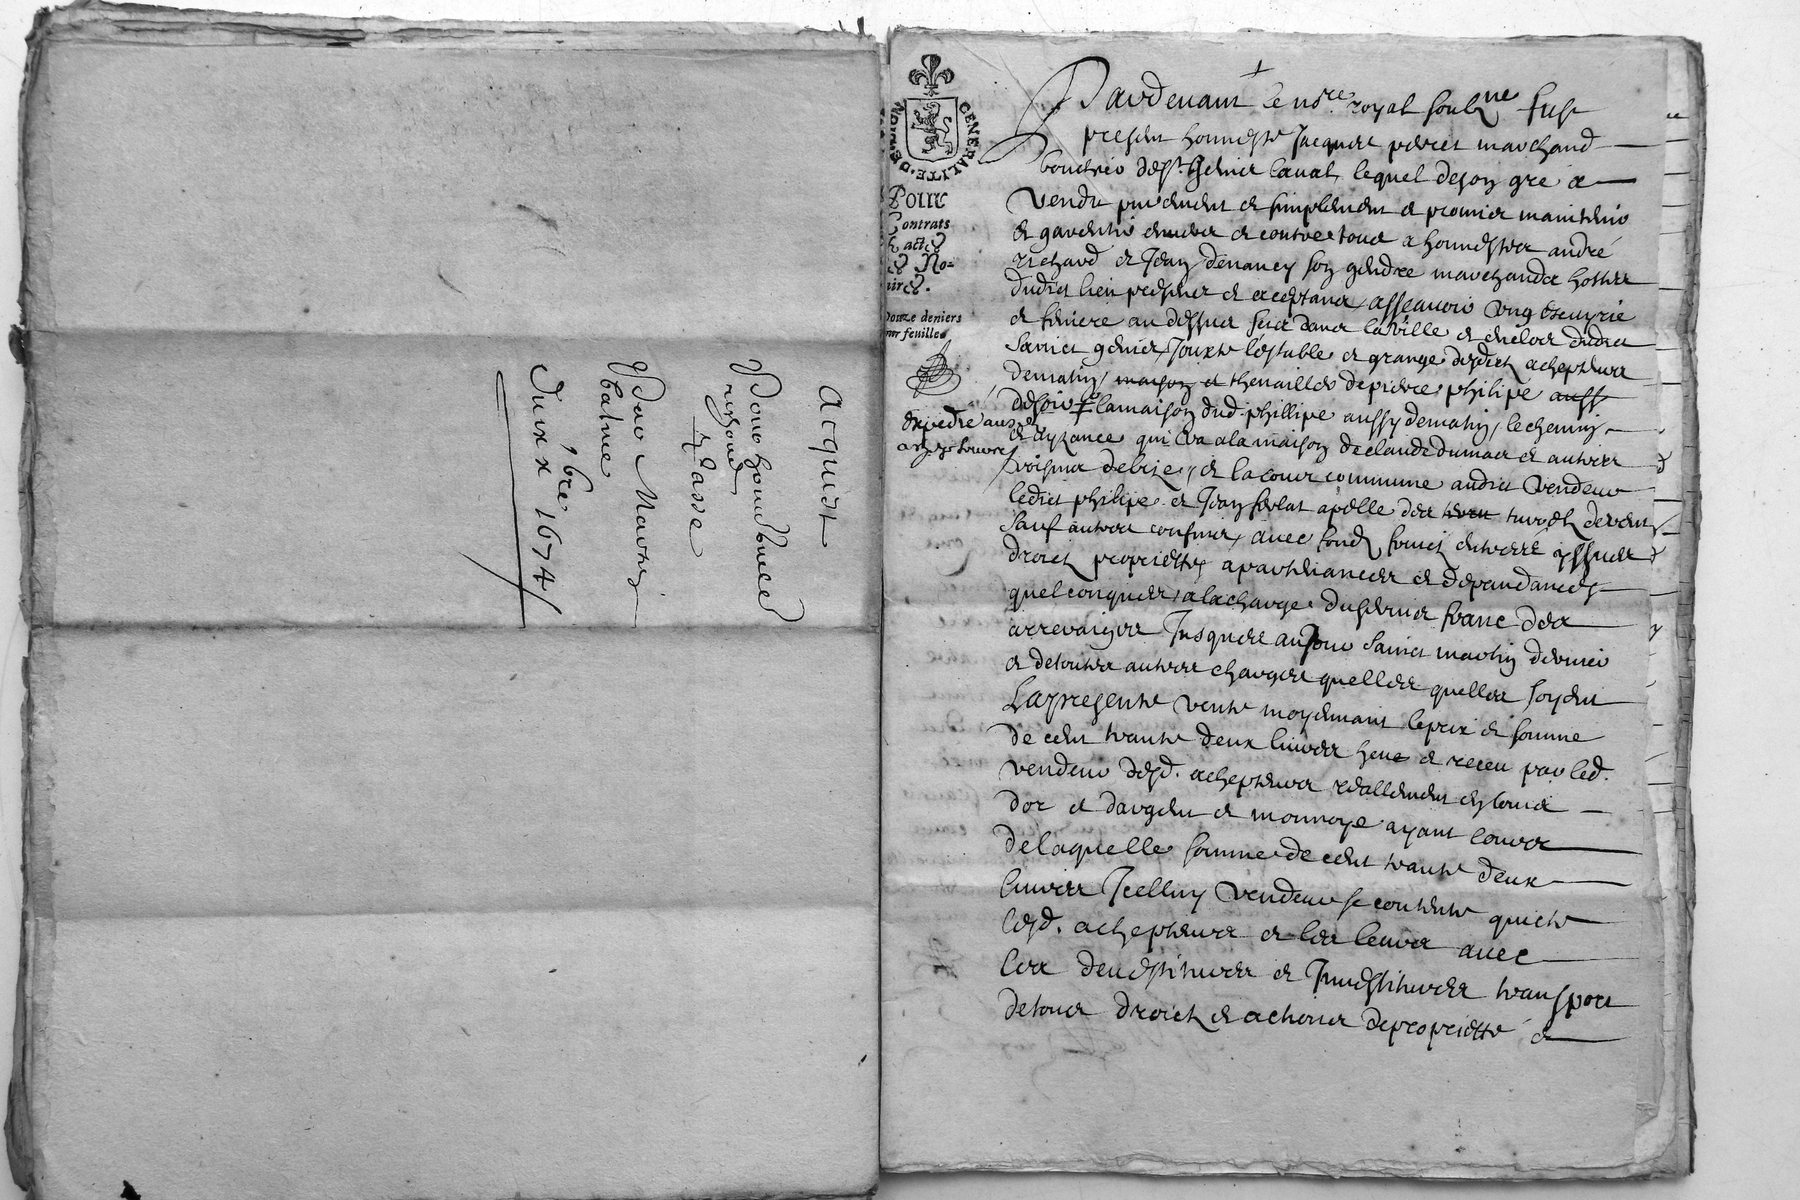 acquist
Pour honnorable
richard
Per Martin
bature
Du xx 9bre 1674
GENERALITE·DE
Pour
Contrats
& actes
No-
Douze deniers
par feuille
expedié aux
Pardevant le nore royal soubzne fust
present honneste Jacques perret marchand
boucher de St. Genis laval, lequel de son gré a
vendu purement et simplement et promier maintenir
et garentir envers et contre tous a honnestes andré
richard et Jean denancy son gendre marchands hostes
dudict lieu presens et aceptans, asseavoir ung escuyrie
et feniere au dessus scize dans la ville et enclos dudict
sainct genis, Jouxte lestable et grange desdicts achepteurs
de matin, maison et thenailles de pierre philipe auss
de soir la maison dud. phillipe aussy de matin, le chemin
et ayzance qui va a la maison de claude dumas et autres
voisins de bize, et la cour commune audict vendeur
ledict philipe et Jean ferlat apellé des
sauf autres confins, avec fondz entrées yssues
droictz proprietés apartenances et dependances
quelconques, a la charge du servis franc des
arreraiges Jusques au Jour sainct martin dernier
et de toutes autres charges quelles quelles soyent
La presente vente moyenant le prix et somme
de cent trante deux livres heue et receu par led.
vendeur desd. achepteurs reallement en louis
dor et dargent et monnoye ayant cours
de laquelle somme de cent trante deux
livres Icelluy vendeur se contente quicte
lesd. achepteurs et les leurs avec
les devestitures et Investitures transport
de tous droictz et actions de proprietté et